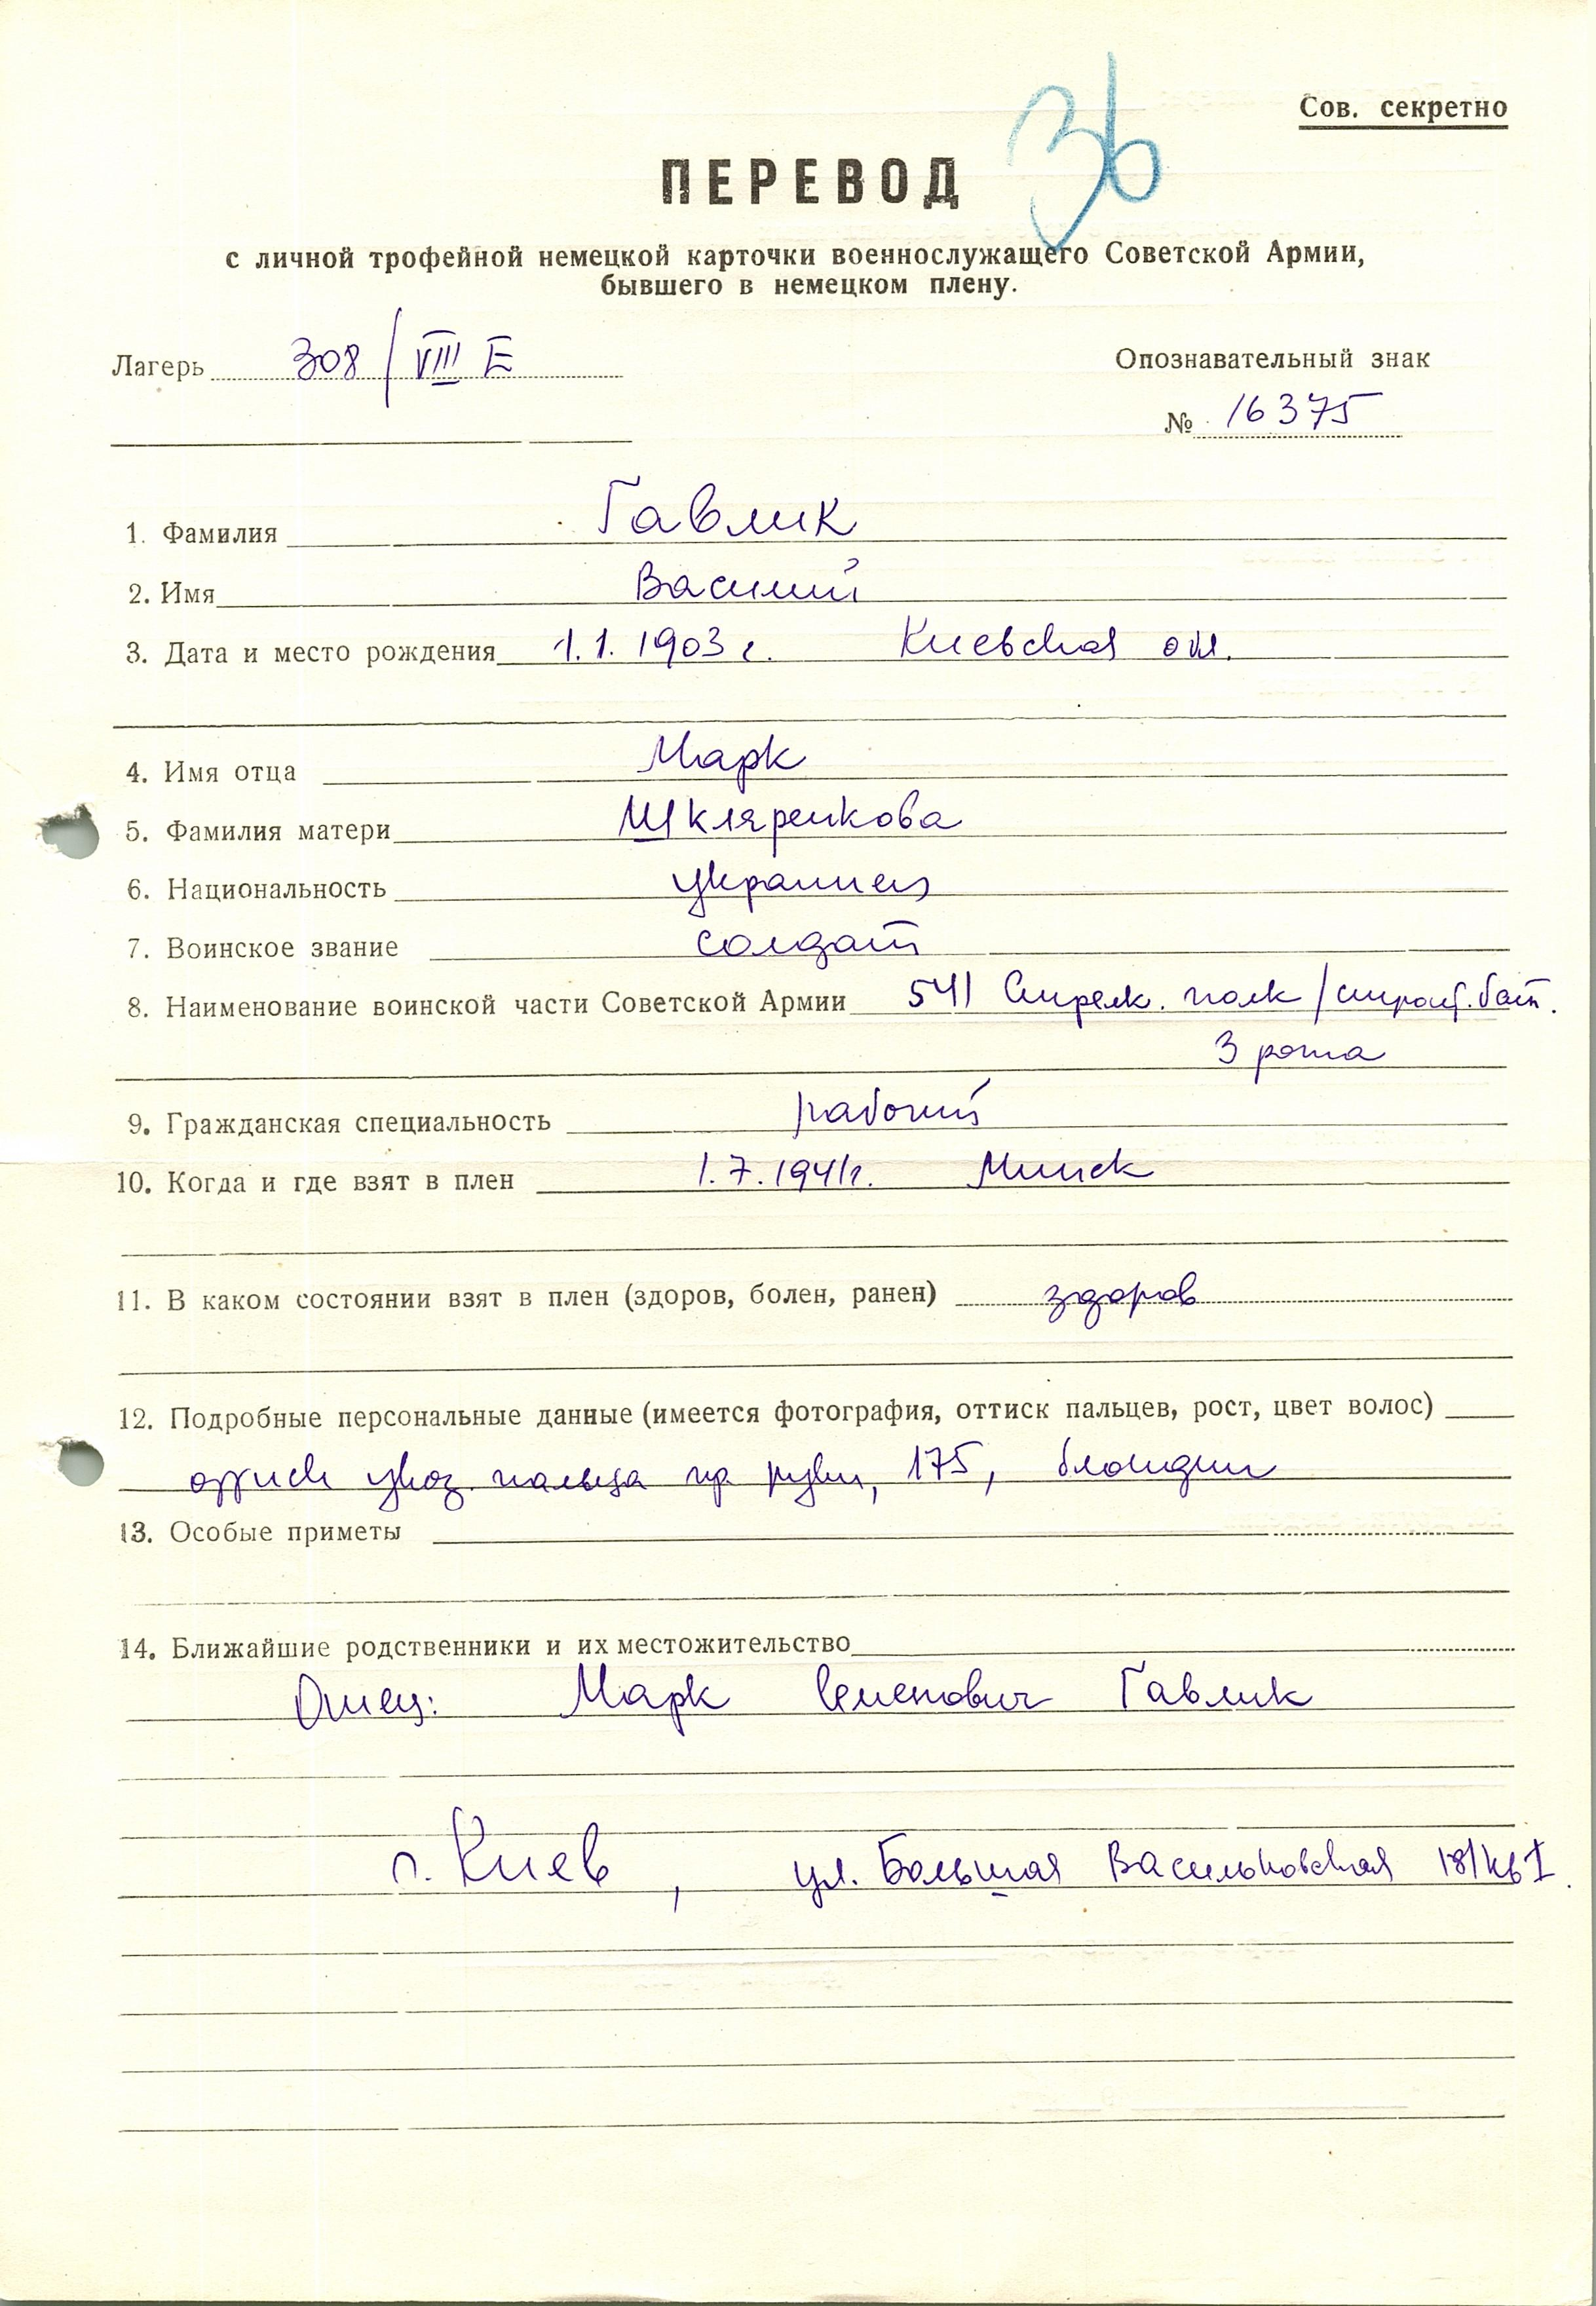 36
Сов. секретно
ПЕРЕВОД
с личной трофейной немецкой карточки военнослужащего Советской Армии,
бывшего в немецком плену.
Лагерь 308/VIII E
Опознавательный знак
№ 16375
1. Фамилия Гавлик
2. Имя Василий
3. Дата и место рождения 1.1.1903 г. Киевская обл.
4. Имя отца Марк
5. Фамилия матери Шкляренкова
6. Национальность украинец
7. Воинское звание солдат
8. Наименование воинской части Советской Армии 541 Стрелк. полк/строит. бат.
3 рота
9. Гражданская специальность рабочий
10. Когда и где взят в плен 1.7.1941г. Минск
11. В каком состоянии взят в плен (здоров, болен, ранен) здоров
12. Подробные персональные данные (имеется фотография, оттиск пальцев, рост, цвет волос)
оттиск указ. пальца пр руки, 175, блондин
13. Особые приметы
14. Ближайшие родственники и их местожительство
Отец: Марк Семенович Гавлик
г. Киев, ул. Большая Васильковская 18/кв I.